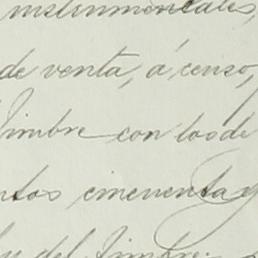 instrumentales,
de venta, á censo,
Timbre con los de
ntos cincuenta y
ley del Timbre;